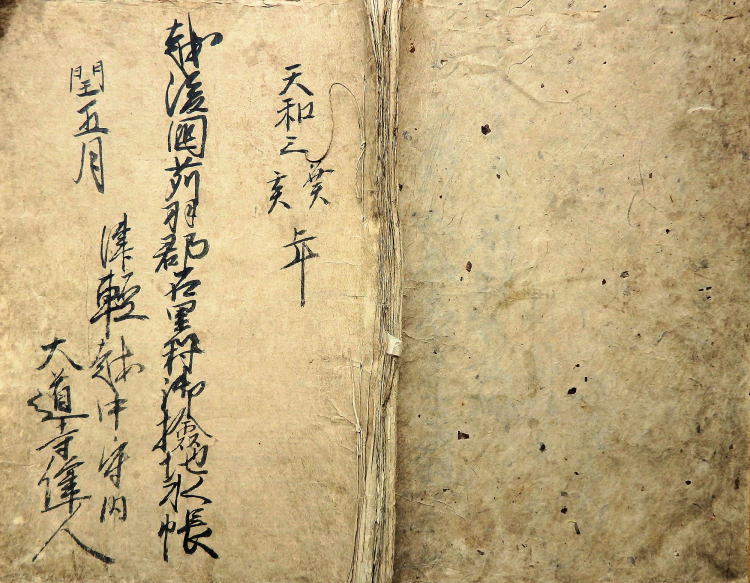 天和三癸亥年
越後國苅羽郡岩里村御撿地水帳
閏五月
津輕越中守内
大道寺隼人